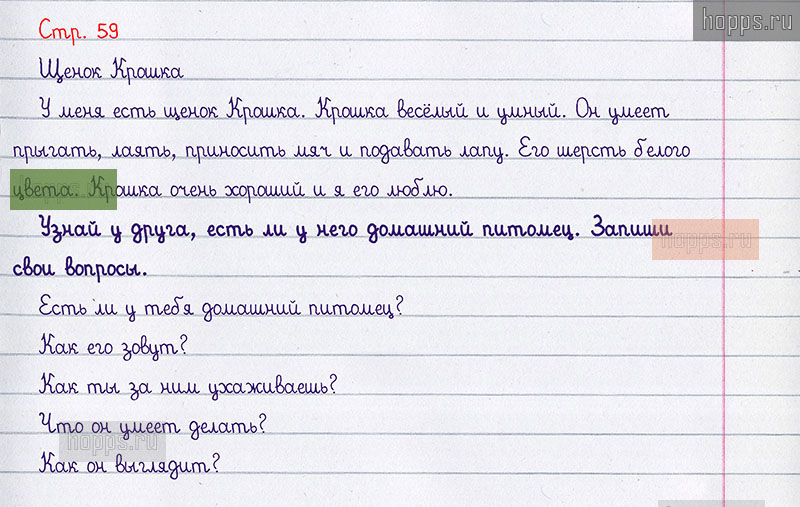 hopps.ru
Стр. 59
Щенок Крошка
У меня есть щенок Крошка. Крошка весёлый и умный. Он умеет
прыгать, лаять, приносить мяч и подавать лапу. Его шерсть белого
цвета. Крошка очень хороший и я его люблю.
Узнай у друга, есть ли у него домашний питомец. Запиши
hopps.ru
свои вопросы.
Есть ли у тебя домашний питомец?
Как его зовут?
Как ты за ним ухаживаешь?
Что он умеет делать?
hopps.ru
Как он выглядит?